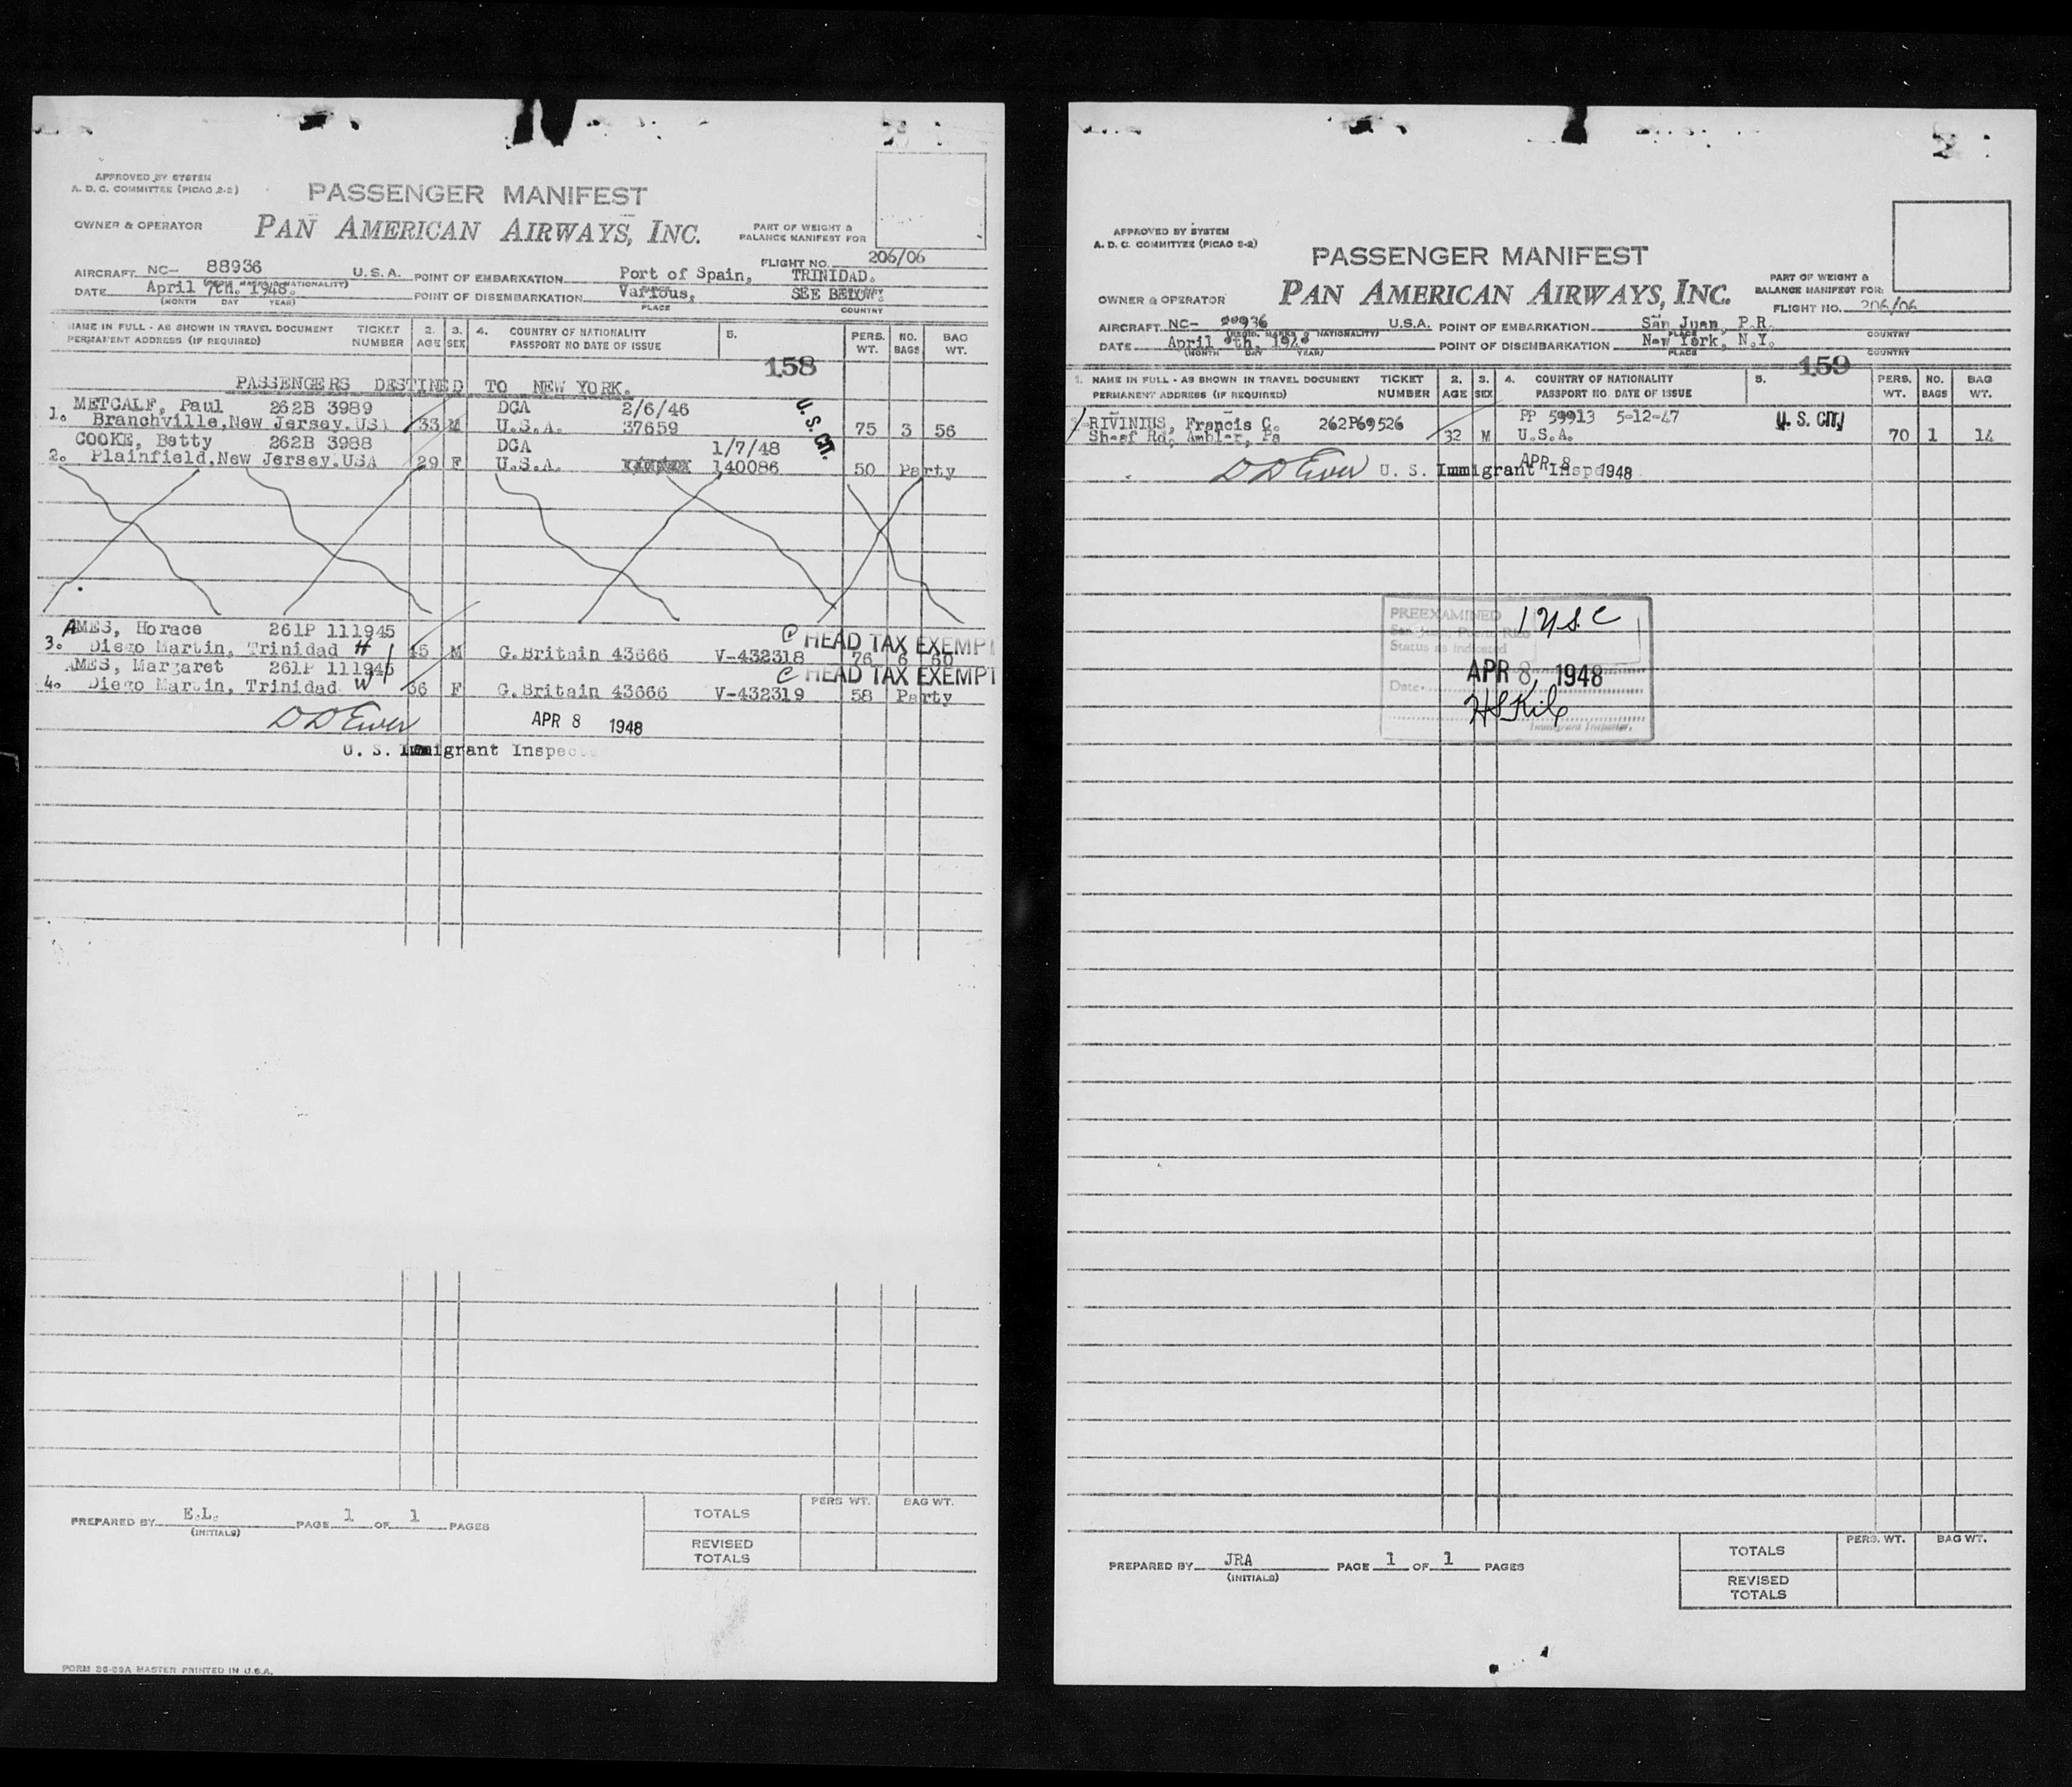 APPROVED BY SYSTEM
A. D. C. COMMITTEE (PICAO 2-2)
PASSENGER MANIFEST
OWNER & OPERATOR
PAN AMERICAN AIRWAYS, INC.
PART OF WEIGHT &
BALANCE MANIFEST FOR
FLIGHT NO. 206/06
AIRCRAFT NC- 88936 U.S.A. POINT OF EMBARKATION Port of Spain, TRINIDAD.
DATE April 7th. 1948. POINT OF DISEMBARKATION Various, SEE BELOW.
(MONTH DAY YEAR) PLACE COUNTRY
NAME IN FULL - AS SHOWN IN TRAVEL DOCUMENT TICKET 2. 3. 4. COUNTRY OF NATIONALITY 5. PERS. NO. BAG
PERMANENT ADDRESS (IF REQUIRED) NUMBER AGE SEX PASSPORT NO DATE OF ISSUE WT. BAGS WT.
158
PASSENGERS DESTINED TO NEW YORK.
METCALF, Paul 262B 3989 DCA 2/6/46
1. Branchville,New Jersey.USA 33 M U.S.A. 37659 75 3 56
U.S. CIT.
COOKE, Betty 262B 3988 DCA 1/7/48
2. Plainfield,New Jersey.USA 29 F U.S.A. 140086 50 Party
AMES, Horace 261P 111945 HEAD TAX EXEMPT
3. Diego Martin, Trinidad H 45 M G.Britain 43666 V-432318 76 6 60
AMES, Margaret 261P 111945 HEAD TAX EXEMPT
4. Diego Martin, Trinidad W 36 F G.Britain 43666 V-432319 58 Party
D D Ewer APR 8 1948
U. S. Immigrant Inspec
PREPARED BY E.L. PAGE 1 OF 1 PAGES
(INITIALS)
PERS WT. BAG WT.
TOTALS
REVISED
TOTALS
FORM 26-09A MASTER PRINTED IN U.S.A.
APPROVED BY SYSTEM
A. D. C. COMMITTEE (PICAO 2-2)
PASSENGER MANIFEST
OWNER & OPERATOR
PAN AMERICAN AIRWAYS, INC.
PART OF WEIGHT &
BALANCE MANIFEST FOR:
FLIGHT NO. 206/06
AIRCRAFT NC- 88936 U.S.A. POINT OF EMBARKATION San Juan, P.R.
PLACE COUNTRY
DATE April 8th. 1948 POINT OF DISEMBARKATION New York, N.Y.
(MONTH DAY YEAR) PLACE COUNTRY
159
1. NAME IN FULL - AS SHOWN IN TRAVEL DOCUMENT TICKET 2. 3. 4. COUNTRY OF NATIONALITY 5. PERS. NO. BAG
PERMANENT ADDRESS (IF REQUIRED) NUMBER AGE SEX PASSPORT NO. DATE OF ISSUE WT. BAGS WT.
RIVINIUS, Francis C. 262P69526 PP 59913 5-12-47 U.S. CIT
Sheaf Rd, Ambler, Pa 32 M U.S.A. 70 1 14
D D Ewer U. S. Immigrant Insp APR 8 1948
PREEXAMINED 1 USC
San Juan, Puerto Rico
Status as indicated
APR 8, 1948
Date
Immigrant Inspector.
PREPARED BY JRA PAGE 1 OF 1 PAGES
(INITIALS)
PERS. WT. BAG WT.
TOTALS
REVISED
TOTALS